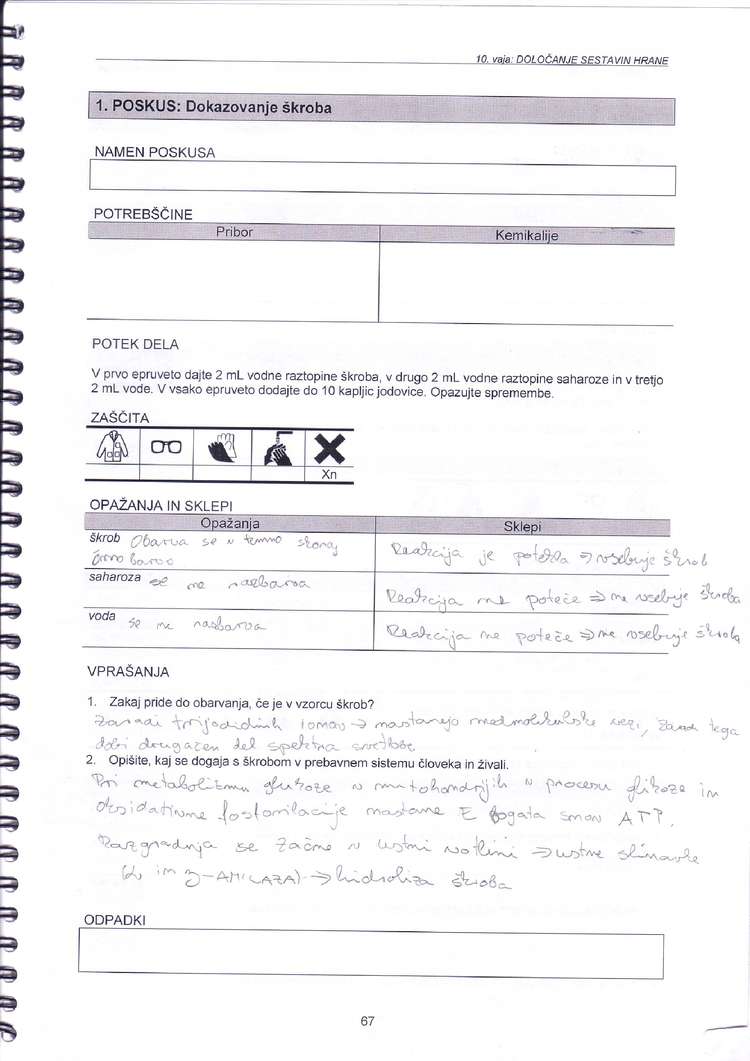 10. vaja: DOLOČANJE SESTAVIN HRANE
1. POSKUS: Dokazovanje škroba
NAMEN POSKUSA
POTREBŠČINE
Pribor
Kemikalije
POTEK DELA
V prvo epruveto dajte 2 mL vodne raztopine škroba, v drugo 2 mL vodne raztopine saharoze in v tretjo
2 mL vode. V vsako epruveto dodajte do 10 kapljic jodovice. Opazujte spremembe.
ZAŠČITA
Xn
OPAŽANJA IN SKLEPI
Opažanja
Sklepi
škrob Obarva se v temno skoraj
črno barvo
Reakcija je potekla => vsebuje škrob
saharoza se ne
Reakcija ne poteče => ne vsebuje škroba
voda se ne
Reakcija ne poteče => ne vsebuje škroba
VPRAŠANJA
1. Zakaj pride do obarvanja, če je v vzorcu škrob?
Zaradi trijodidnih ionov -> nastanejo medmolekulske vezi, zaradi tega
dobi drugačen del spektra svetlobe
2. Opišite, kaj se dogaja s škrobom v prebavnem sistemu človeka in živali.
Pri metabolizmu glukoze v mitohondrijih v procesu glikoze in
oksidativne fosforilacije nastane E bogata snov ATP.
Razgradnja se začne v ustni votlini => ustne slinavke
in AMILAZA) -> hidroliza škroba
ODPADKI
67